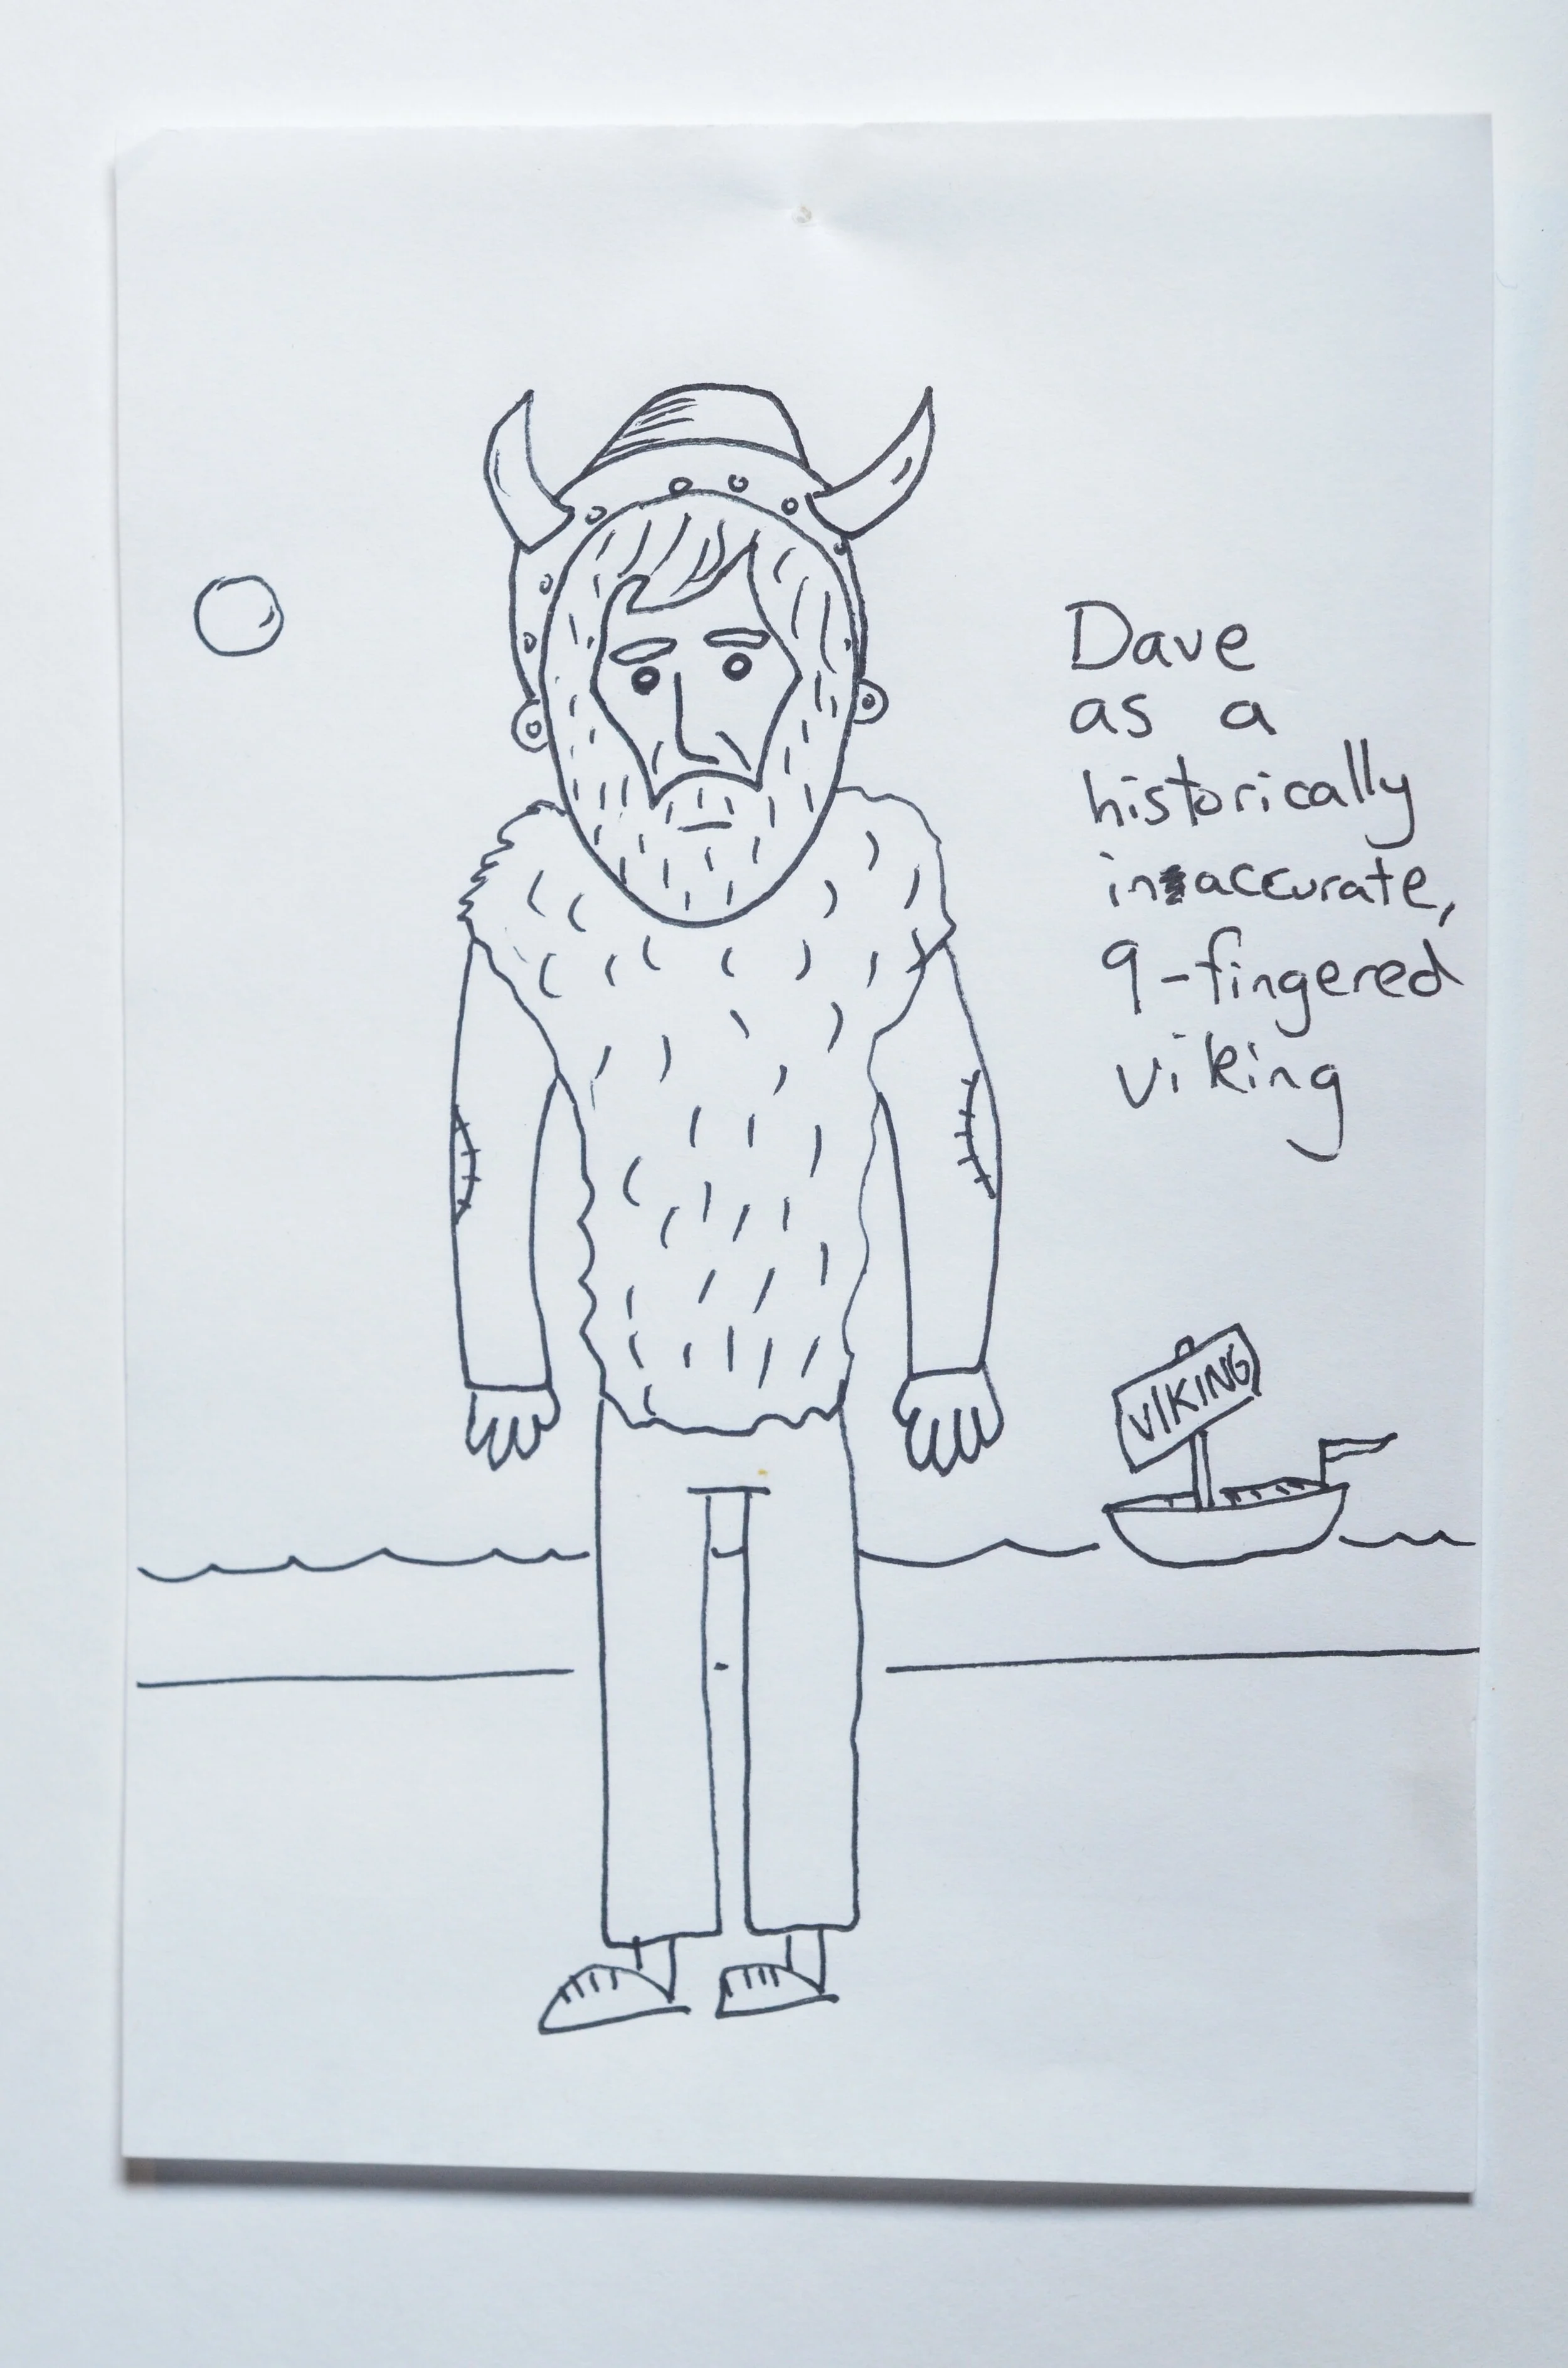 Dave
as a
historically
inaccurate,
9-fingered
viking
VIKING